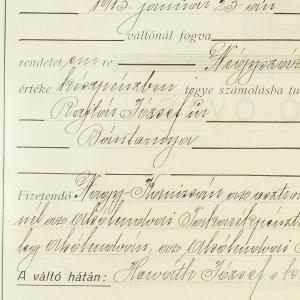 1913. január 25-én
váltónál fogva
rendelet em re Négyszáz
értéke készpénzben tegye számolásba tu
Rajtár József úr
Bántornya
Fizetendő Nagy-Kanizsán az osztrá
nél az Alsólendvai Takarékpénztá
leg Alsólendván, az Alsólendvai
A váltó hátán: Horváth József s. k.